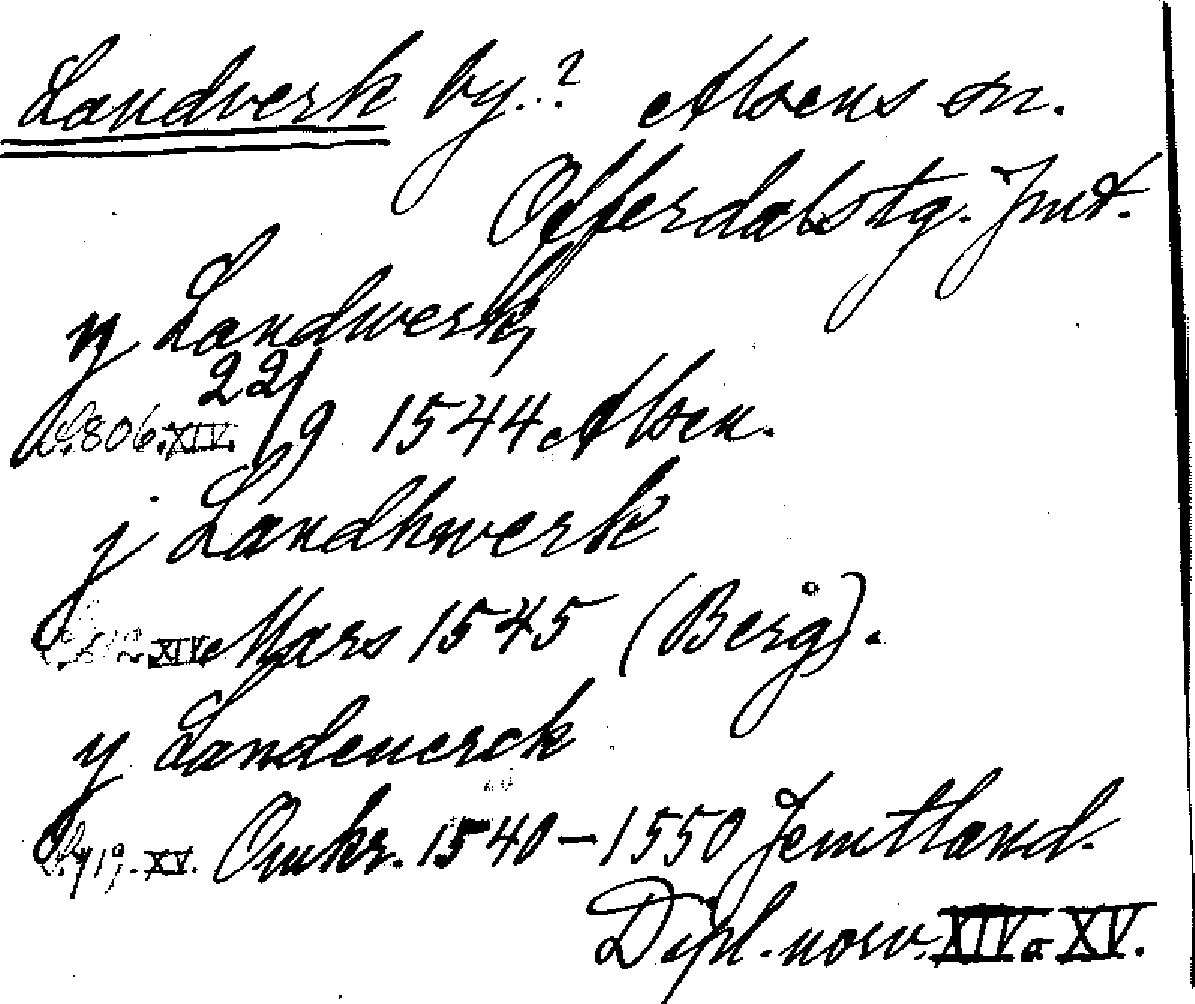 Landverk by..? Alsens sn.
Offerdals tg. Jmt.
y Landwerk,
D. 806. XIV. 22/9 1544 Alsen.
j Landhwerk
XIV. Mars 1545 (Berg).
y Landeuerck
XV. Omkr. 1540–1550 Jemtland.
Dipl. norv. XIV o XV.